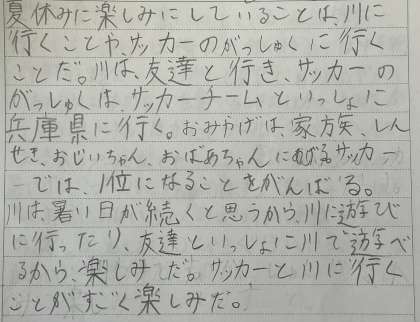 夏休みに楽しみにしていることは、川に
行くことや、サッカーのがっしゅくに行く
ことだ。川は、友達と行き、サッカーの
がっしゅくは、サッカーチームといっしょに
兵庫県に行く。おみやげは、家族、しん
せき、おじいちゃん、おばあちゃんにあげるサッカ
ーでは、1位になることをがんばる。
川は、暑い日が続くと思うから、川に遊び
に行ったり、友達といっしょに川で遊べ
るから、楽しみだ。サッカーと川に行く
ことがすごく楽しみだ。